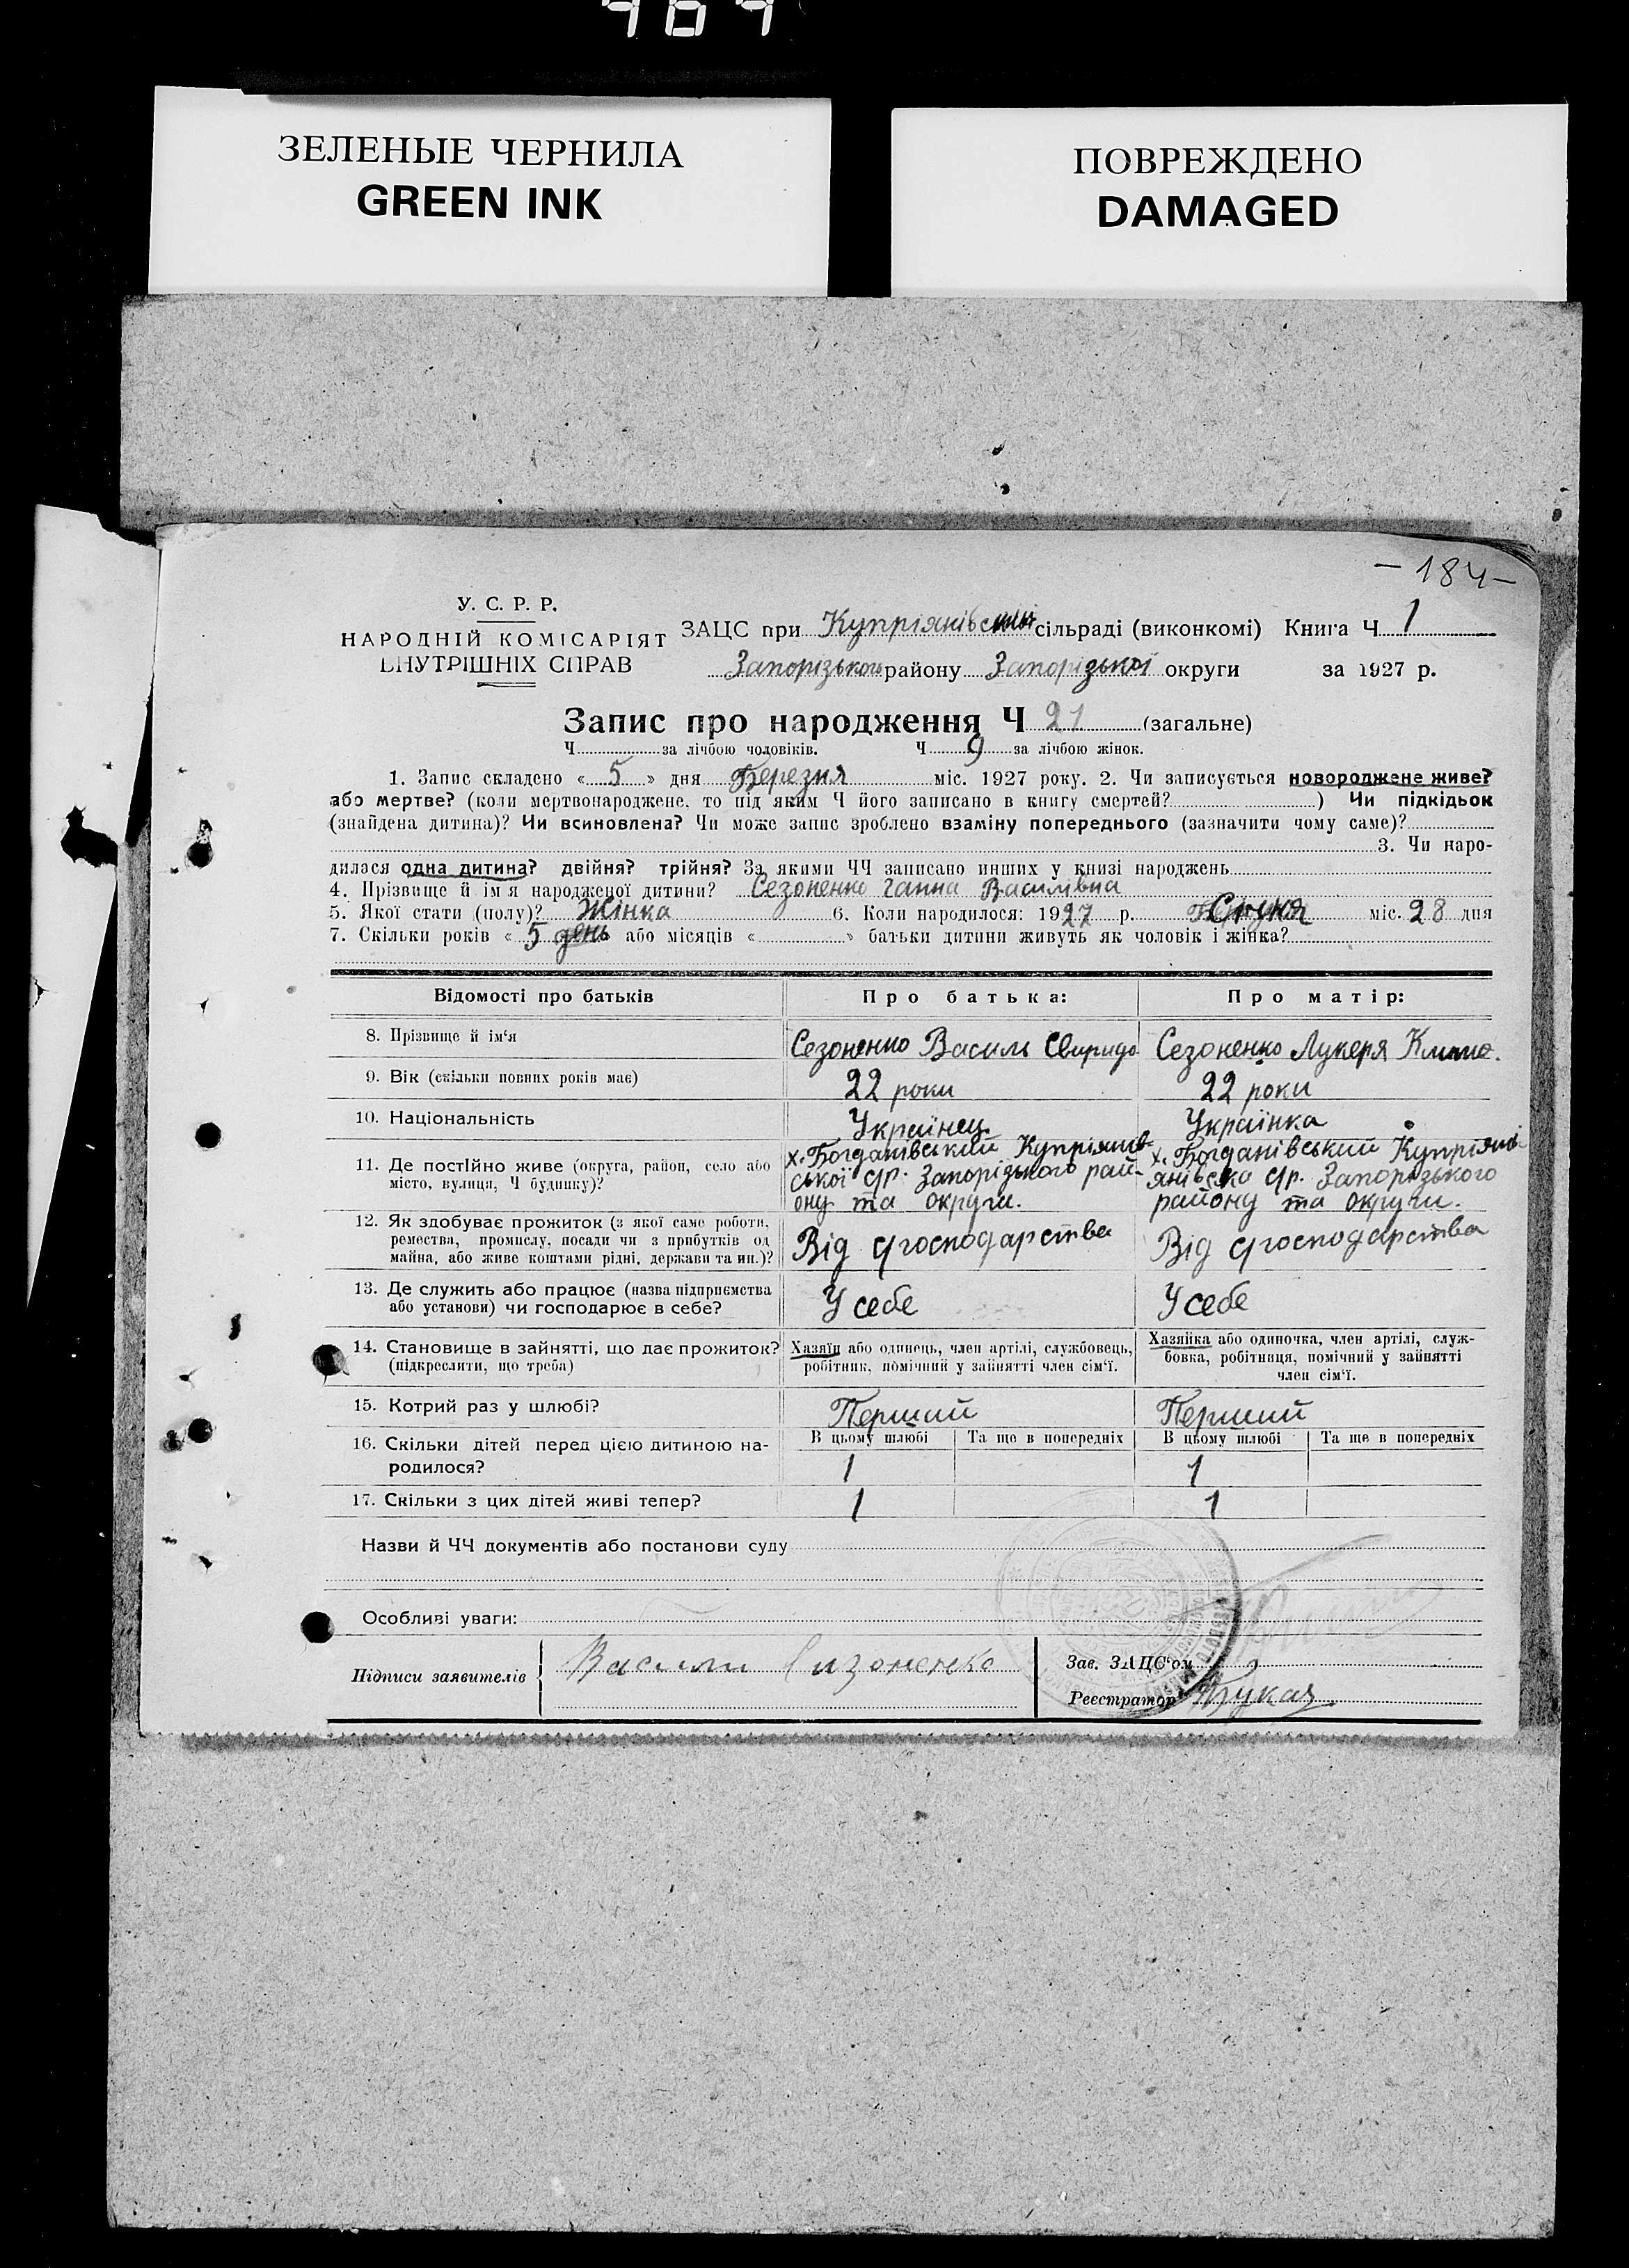 ЗЕЛЕНЫЕ ЧЕРНИЛА
GREEN INK
ПОВРЕЖДЕНО
DAMAGED
— 184 —
У. С. Р. Р.
НАРОДНІЙ КОМІСАРІЯТ
ВНУТРІШНІХ СПРАВ
ЗАЦС при Купріянівській сільраді (виконкомі) Книга Ч 1
Запорізького району Запорізької округи за 1927 р.
Запис про народження Ч 21 (загальне)
Ч за лічбою чоловіків. Ч 9 за лічбою жінок.
1. Запис складено « 5 » дня Березня міс. 1927 року. 2. Чи записується новороджене живе?
або мертве? (коли мертвонароджене, то під яким Ч його записано в книгу смертей? ) Чи підкідьок
(знайдена дитина)? Чи всиновлена? Чи може запис зроблено взаміну попереднього (зазначити чому саме)?
3. Чи наро-
дилася одна дитина? двійня? трійня? За якими ЧЧ записано инших у книзі народжень
4. Прізвище й ім'я народженої дитини? Сезоненко Ганна Василівна
5. Якої стати (полу)? Жінка 6. Коли народилося: 1927 р. міс. 28 дня
7. Скільки років « 5 день або місяців « » батьки дитини живуть як чоловік і жінка?
Відомості про батьків Про батька: Про матір:
8. Прізвище й ім'я Сезоненко Василь Свиридо Сезоненко Лукеря Климо.
9. Вік (скільки повних років має) 22 роки 22 роки
10. Національність Українец Українка
11. Де постійно живе (округа, район, село або місто, вулиця, Ч будинку)?
х. Богданівський Купріянів-
ської с/р. Запорізького рай-
ону та округи.
х. Богданівський Купріяні-
янівська с/р. Запорізького
району та округи.
12. Як здобуває прожиток (з якої саме роботи,
ремества, промислу, посади чи з прибутків од
майна, або живе коштами рідні, держави та ин.)?
Від с/господарства Від с/господарства
13. Де служить або працює (назва підприємства
або установи) чи господарює в себе?
У себе У себе
14. Становище в зайнятті, що дає прожиток?
(підкреслити, що треба)
Хазяїн або одинець, член артілі, службовець,
робітник, помічний у зайнятті член сім'ї.
Хазяйка або одиночка, член артілі, служ-
бовка, робітниця, помічний у зайнятті
член сім'ї.
15. Котрий раз у шлюбі? Перший Перший
16. Скільки дітей перед цією дитиною на-
родилося?
В цьому шлюбі Та ще в попередніх В цьому шлюбі Та ще в попередніх
1 1
17. Скільки з цих дітей живі тепер? 1 1
Назви й ЧЧ документів або постанови суду
Особливі уваги:
Підписи заявителів Василь Сизоненко
Зав. ЗАЦС'ом
Реєстратор